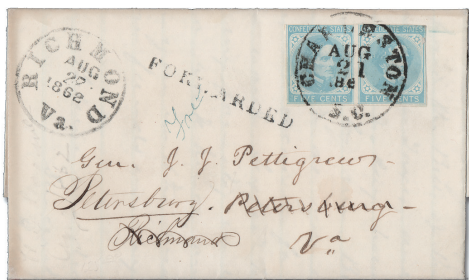 RICHMOND Va.
AUG
27
1862
FORWARDED
CHARLESTON S.C.
AUG
21
FIVE CENTS
FIVE CENTS
Gen. J. J. Pettigrew
Petersburg. Petersburg
Richmond Va